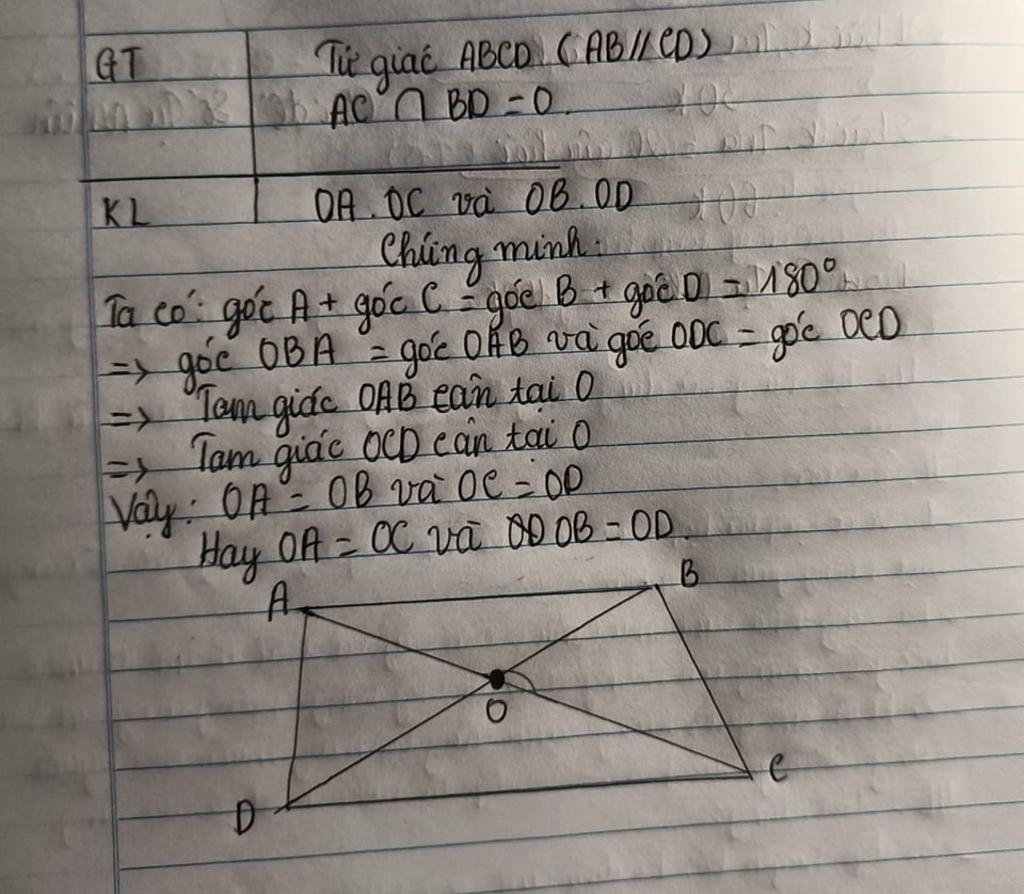 GT Tứ giác ABCD (AB//CD)
AC ∩ BD = O.
KL OA. OC và OB. OD
Chứng minh:
Ta có: góc A + góc C = góc B + góc D = 180°
=> góc OBA = góc OAB và góc ODC = góc OCD
=> Tam giác OAB cân tại O
=> Tam giác OCD cân tại O
Vậy: OA = OB và OC = OD
Hay OA = OC và OB = OD.
A B
O
D C